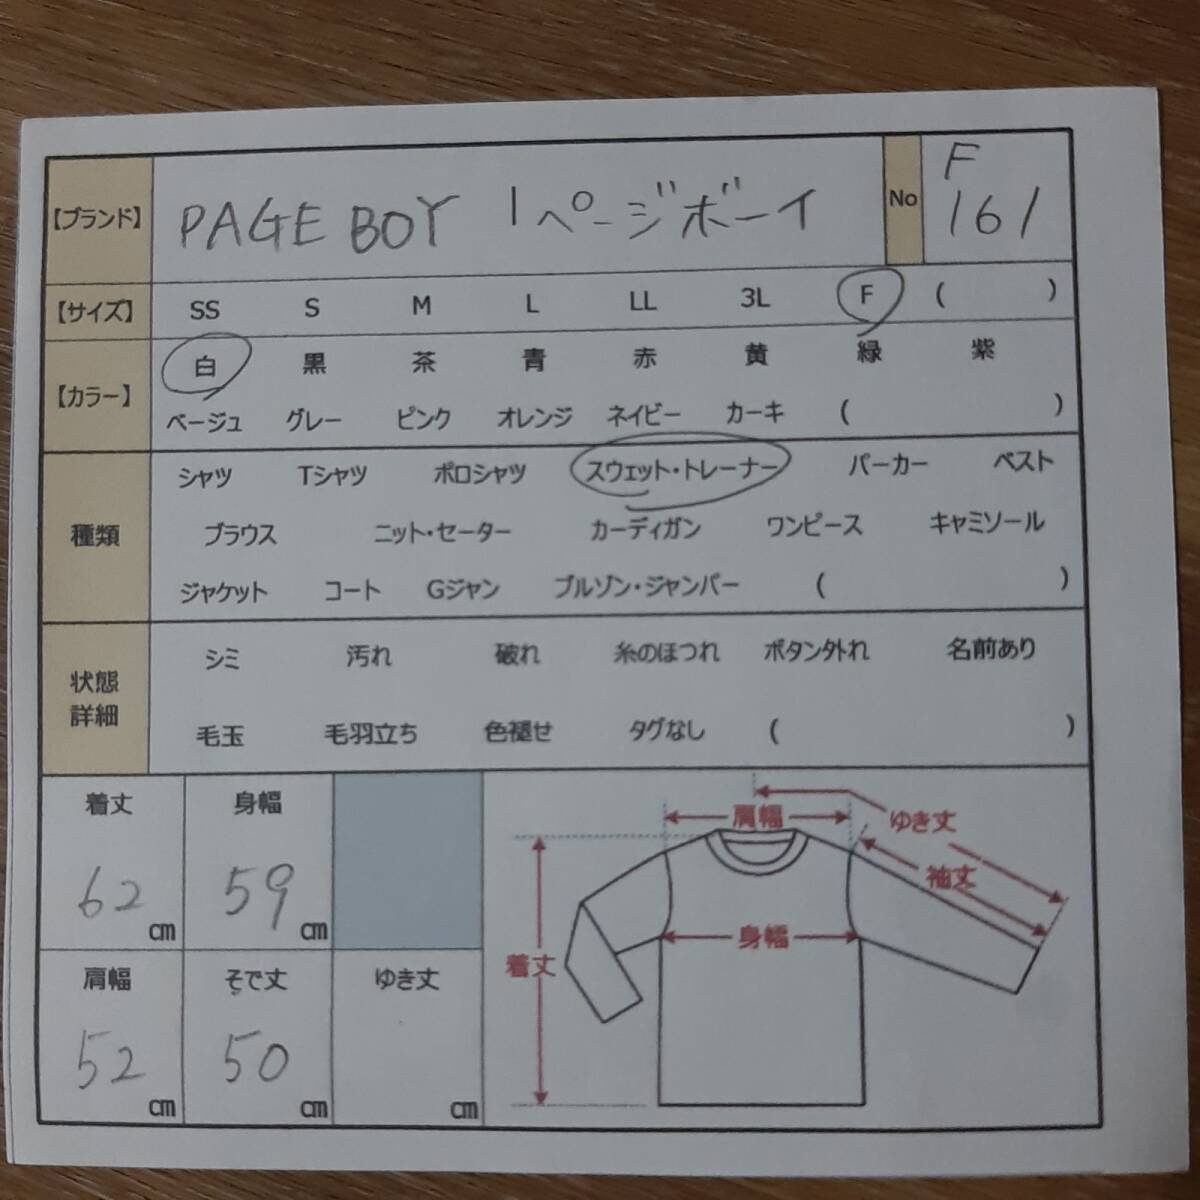 【ブランド】 PAGE BOY 1ページボーイ No F
161
【サイズ】 SS S M L LL 3L F ( )
【カラー】 白 黒 茶 青 赤 黄 緑 紫
ベージュ グレー ピンク オレンジ ネイビー カーキ ( )
種類 シャツ Tシャツ ポロシャツ スウェット・トレーナー パーカー ベスト
ブラウス ニット・セーター カーディガン ワンピース キャミソール
ジャケット コート Gジャン ブルゾン・ジャンパー ( )
状態
詳細
シミ 汚れ 破れ 糸のほつれ ボタン外れ 名前あり
毛玉 毛羽立ち 色褪せ タグなし ( )
着丈 身幅
62cm 59cm
肩幅 そで丈 ゆき丈
52cm 50cm cm
肩幅 ゆき丈
袖丈
身幅
着丈